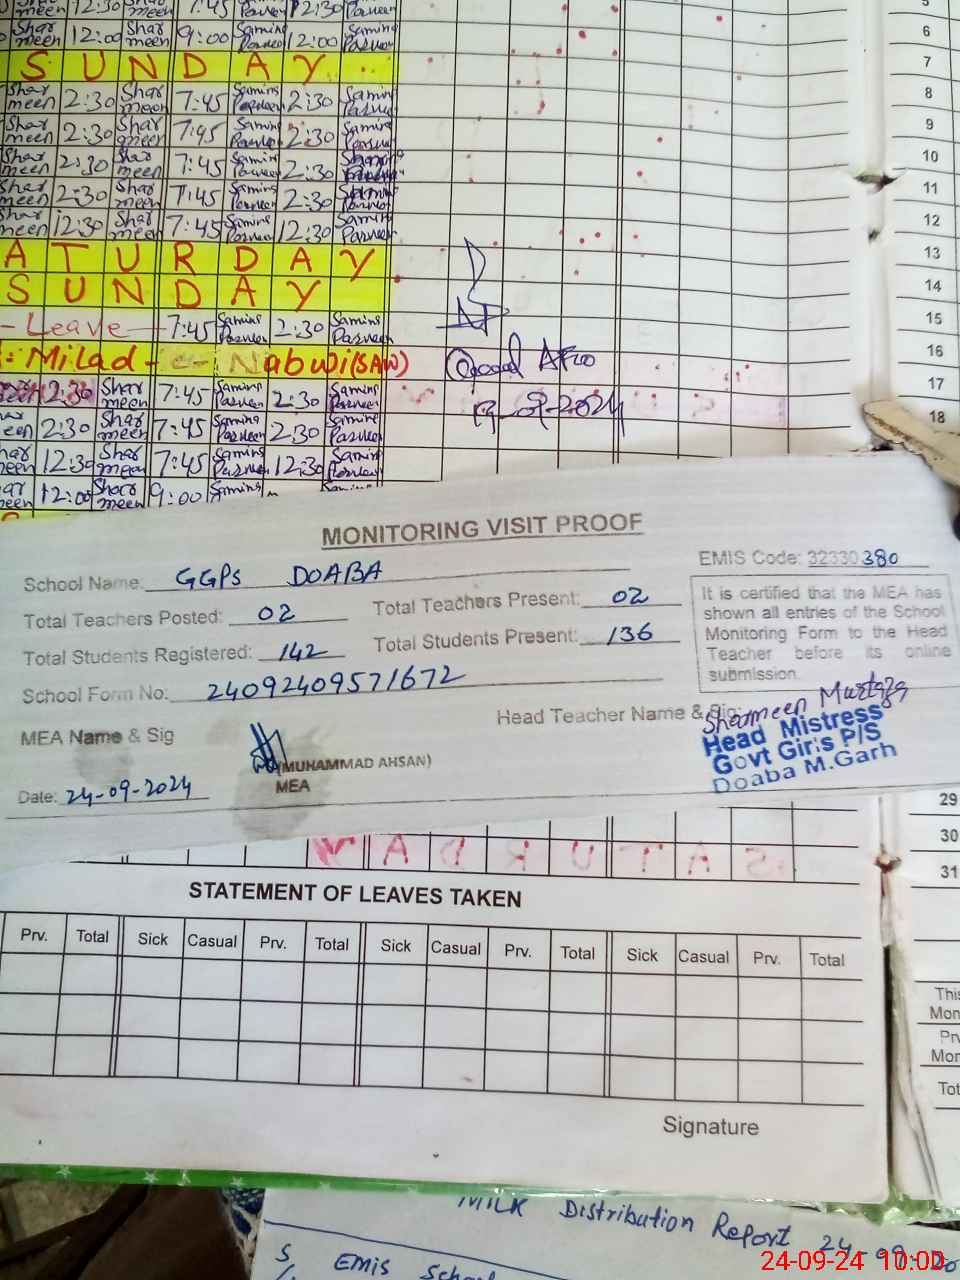 meen 12:30 meen 7:45 Parveen 12:30 Parveen 5
Shar meen 12:00 Shar meen 9:00 Samina Parveen 12:00 Samina Parveen 6
S U N D A Y 7
Shar meen 2:30 Shar meen 7:45 Samina Parveen 2:30 Samina Parveen 8
Shar meen 2:30 Shar meen 7:45 Samina Parveen 2:30 Samina Parveen 9
Shar meen 2:30 Shar meen 7:45 Samina Parveen 2:30 10
Shar meen 2:30 Shar meen 7:45 Samina Parveen 2:30 Samina Parveen 11
Shar meen 12:30 Shar meen 7:45 Samina Parveen 12:30 Samina Parveen 12
A T U R D A Y 13
S U N D A Y 14
- Leave 7:45 Samina Parveen 2:30 Samina Parveen 15
: Milad - e - Nabwi (SAW) 16
2:30 Shar meen 7:45 Samina Parveen 2:30 Samina Parveen 17
2:30 Shar meen 7:45 Samina Parveen 2:30 Samina Parveen 19-09-2024 18
12:30 Shar meen 7:45 Samina Parveen 12:30 Samina Parveen
12:00 Shar meen 9:00 Samina
MONITORING VISIT PROOF
School Name: GGPS DOABA EMIS Code: 32330380
Total Teachers Posted: 02 Total Teachers Present: 02
Total Students Registered: 142 Total Students Present: 136
School Form No: 24092409571672
It is certified that the MEA has
shown all entries of the School
Monitoring Form to the Head
Teacher before its online
submission.
MEA Name & Sig Head Teacher Name & Sig: Sharmeen Murtaza
(MUHAMMAD AHSAN)
MEA
Head Mistress
Govt Girls P/S
Doaba M.Garh
Date: 24-09-2024
29
30
31
S A T U R D A Y
STATEMENT OF LEAVES TAKEN
Prv. Total Sick Casual Prv. Total Sick Casual Prv. Total Sick Casual Prv. Total
This
Mon
Prv
Mon
Tot
Signature
MILK Distribution Report 24-09-20
S EMIS School
24-09-24 10:00